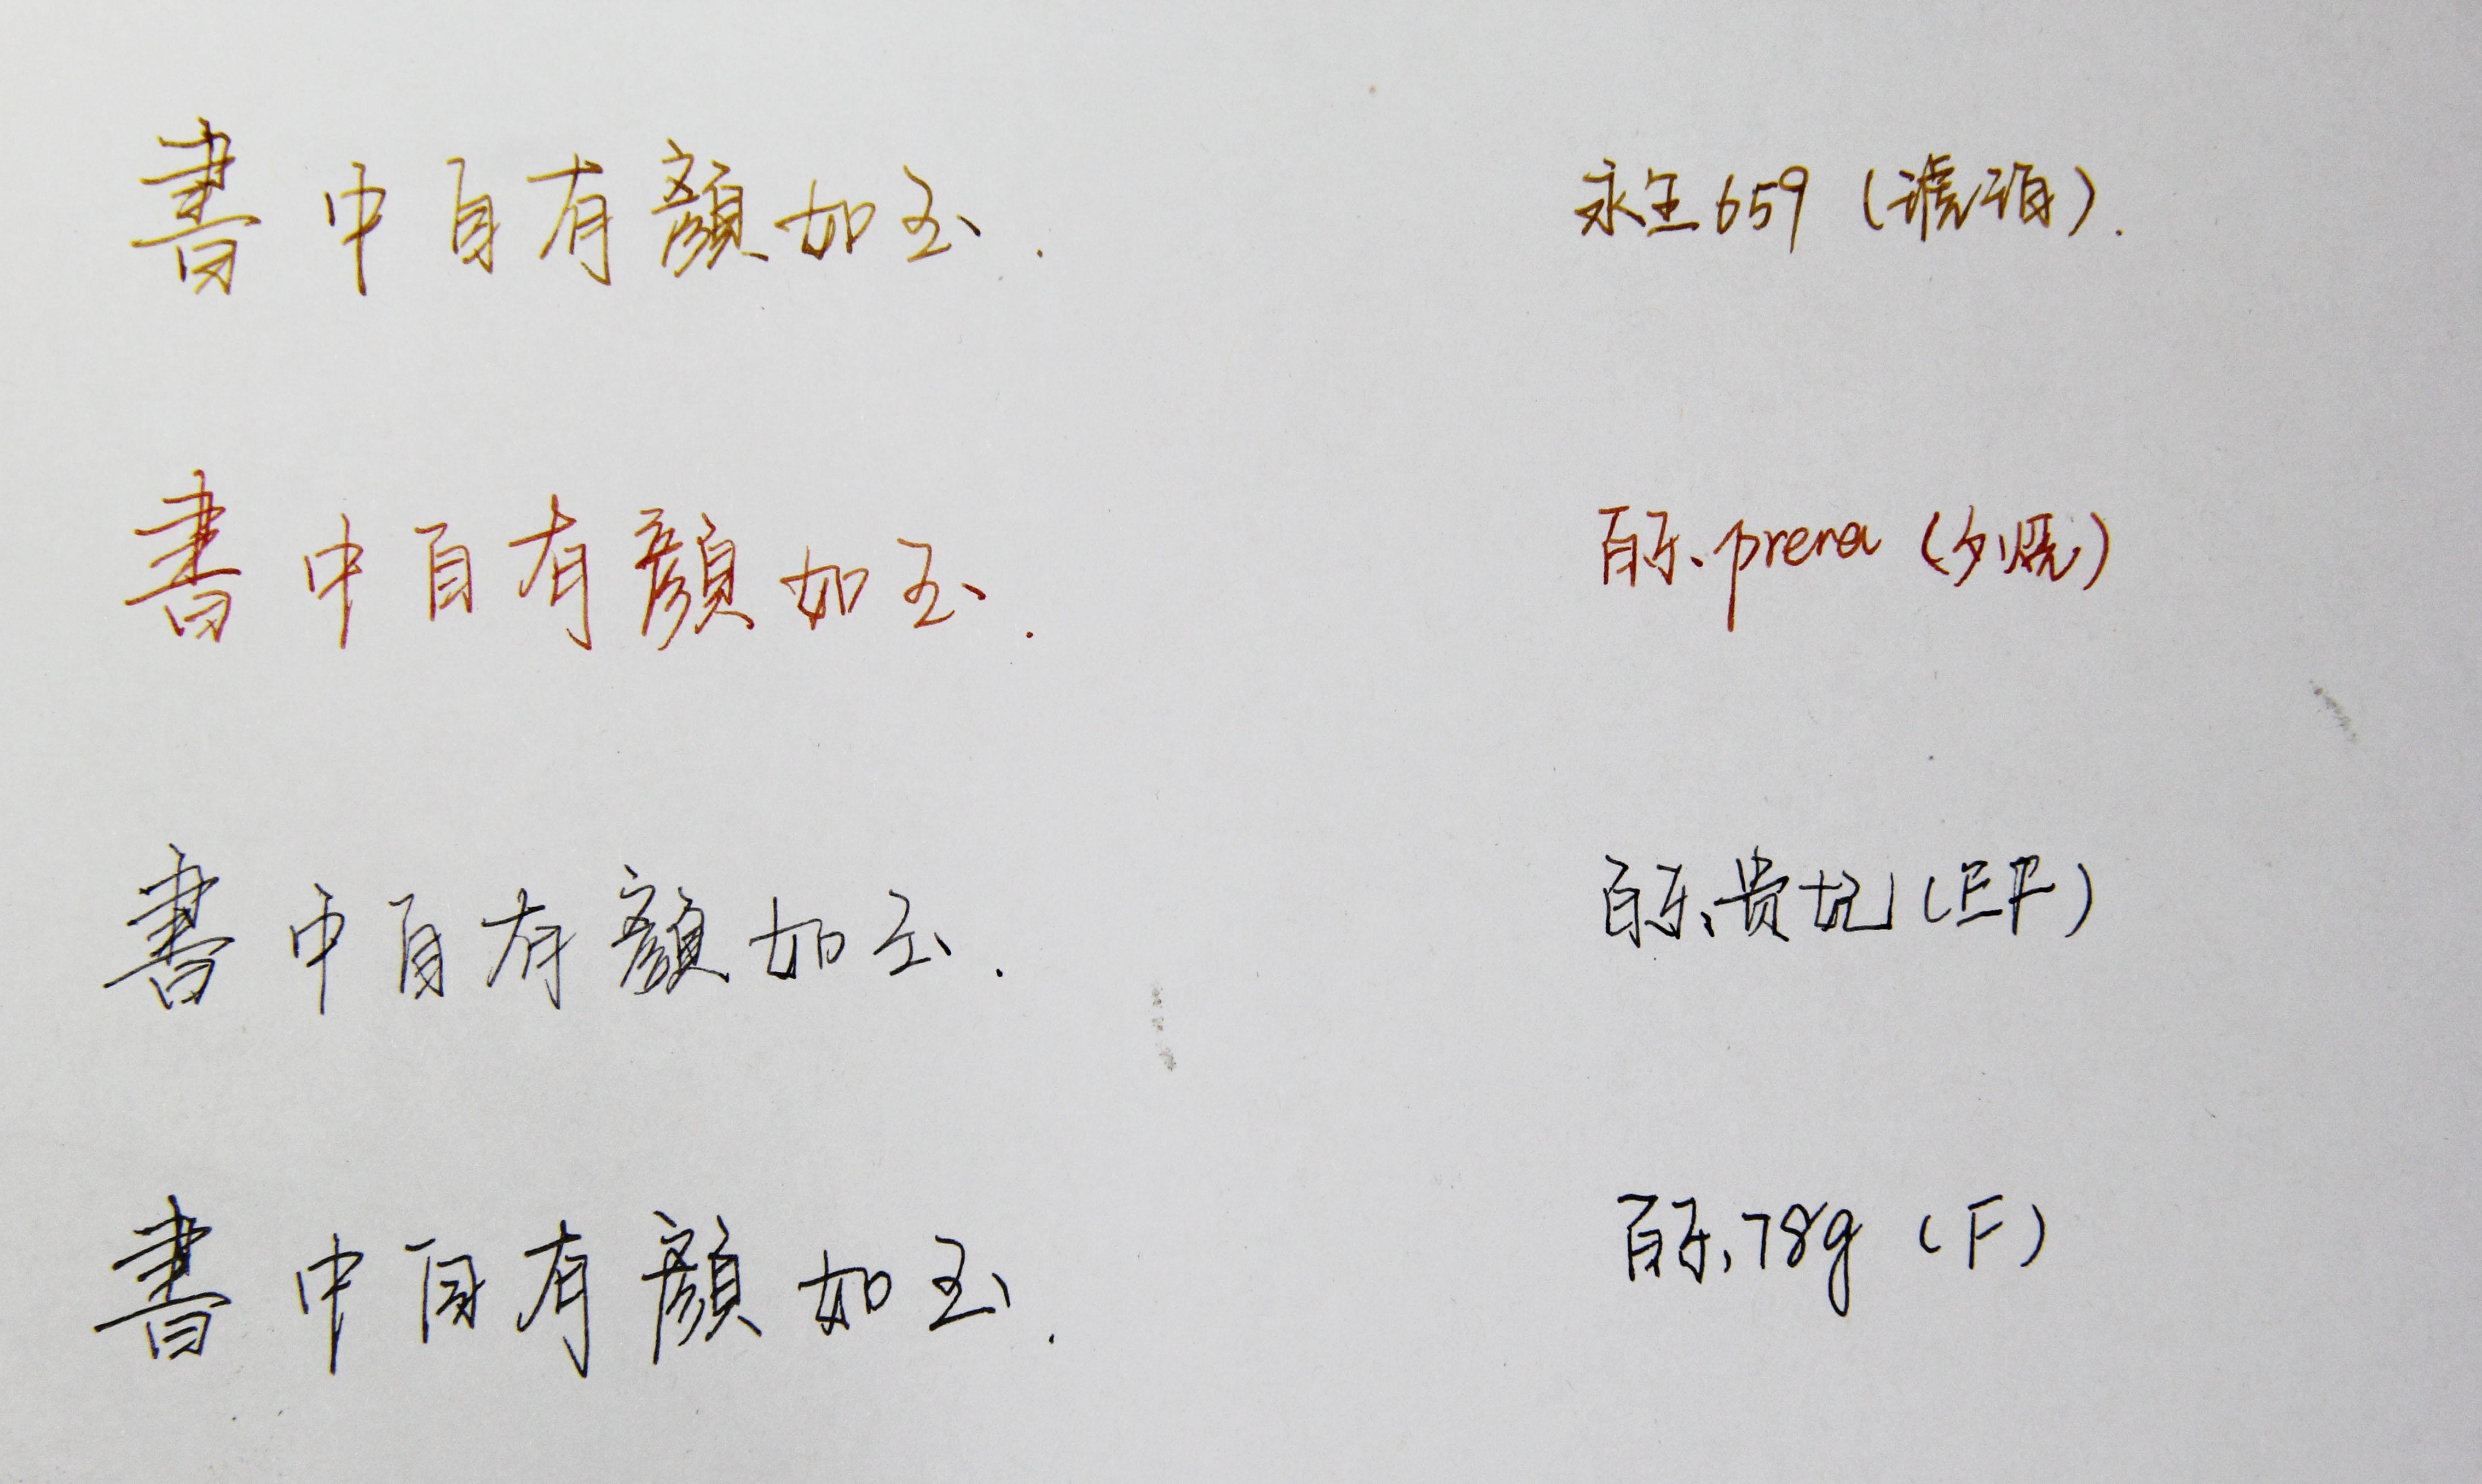 書中自有顏如玉. 永生659（琥珀）.
書中自有顏如玉. 百乐.prera（夕焼）
書中自有顏如玉. 百乐.贵妃（EF）
書中自有顏如玉. 百乐.78g（F）